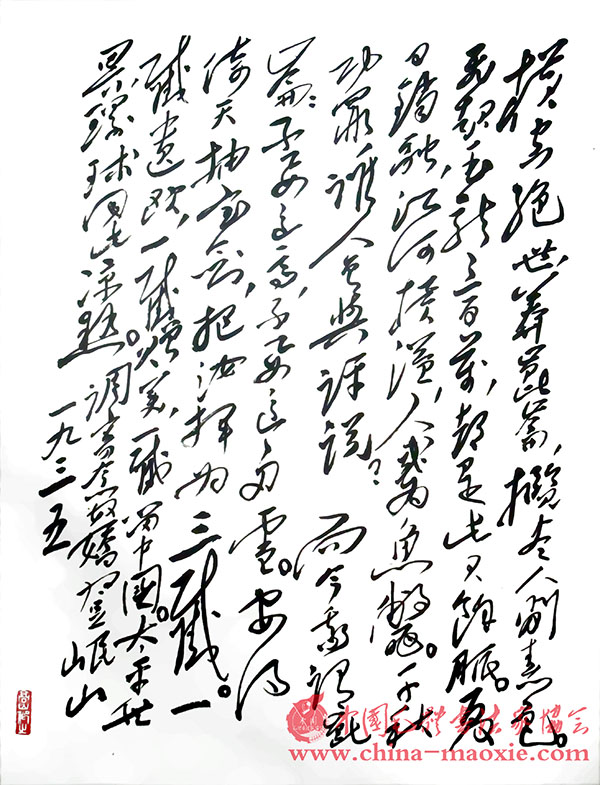 横空绝世莽崑崙,攬尽人间春色。
飞起玉龙三百万,都是此餘脈。夏
日融,江河横溢,人或为鱼鳖。千秋
功罪谁人曾與评说?而今我谓崑
崙:不要这高,不要这多雪。安得
倚天抽宝剑,把汝挥为三截。一
截遗欧,一截赠美,一截留中國。太平世
界環球同此凉热。调寄念奴嬌 登岷山
一九三五
中國毛體書法家協会
www.china-maoxie.com